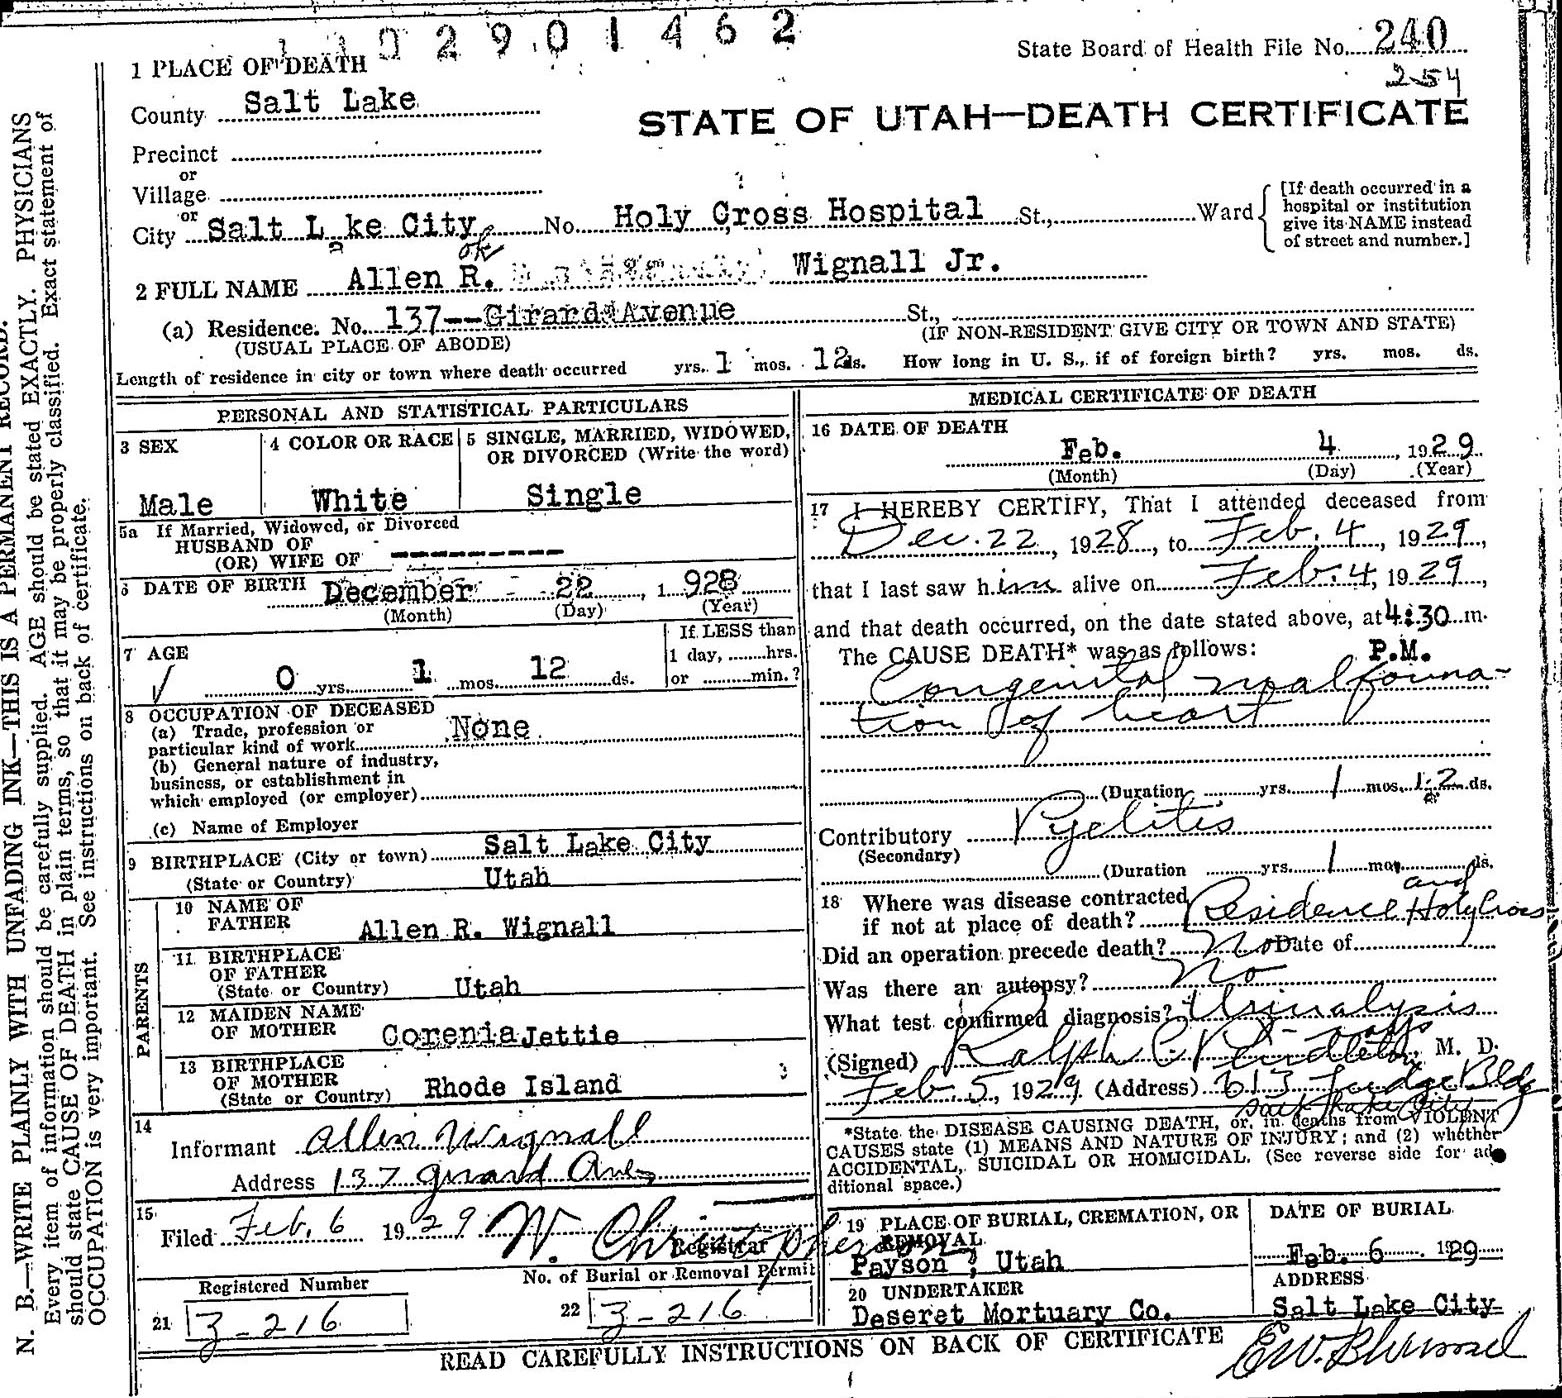 2901462
State Board of Health File No. 240
254
1 PLACE OF DEATH
County Salt Lake
STATE OF UTAH—DEATH CERTIFICATE
Precinct
or
Village
or
City Salt Lake City No. Holy Cross Hospital St., Ward
[If death occurred in a
hospital or institution
give its NAME instead
of street and number.]
ok
2 FULL NAME Allen R. Wignall Jr.
(a) Residence. No. 137--Girard Avenue St.,
(USUAL PLACE OF ABODE) (IF NON-RESIDENT GIVE CITY OR TOWN AND STATE)
Length of residence in city or town where death occurred yrs. 1 mos. 12 ds. How long in U. S., if of foreign birth? yrs. mos. ds.
PERSONAL AND STATISTICAL PARTICULARS
3 SEX
Male
4 COLOR OR RACE
White
5 SINGLE, MARRIED, WIDOWED,
OR DIVORCED (Write the word)
Single
5a If Married, Widowed, or Divorced
HUSBAND OF
(OR) WIFE OF -------
6 DATE OF BIRTH December - 22, 1928
(Month) (Day) (Year)
7 AGE
0 yrs. 1 mos. 12 ds.
If LESS than
1 day, hrs.
or min.?
8 OCCUPATION OF DECEASED
(a) Trade, profession or
particular kind of work None
(b) General nature of industry,
business, or establishment in
which employed (or employer)
(c) Name of Employer
9 BIRTHPLACE (City or town) Salt Lake City
(State or Country) Utah
PARENTS
10 NAME OF
FATHER Allen R. Wignall
11 BIRTHPLACE
OF FATHER
(State or Country) Utah
12 MAIDEN NAME
OF MOTHER Corenia Jettie
13 BIRTHPLACE
OF MOTHER
(State or Country) Rhode Island
14
Informant Allen Wignall
Address 137 Girard Ave
15
Filed Feb. 6 1929 W. Christopherson
Registrar
Registered Number
21 3-216
No. of Burial or Removal Permit
22 3-216
MEDICAL CERTIFICATE OF DEATH
16 DATE OF DEATH
Feb. 4, 1929
(Month) (Day) (Year)
17 I HEREBY CERTIFY, That I attended deceased from
Dec. 22, 1928, to Feb. 4, 1929,
that I last saw him alive on Feb. 4, 1929,
and that death occurred, on the date stated above, at 4:30 m.
P.M.
The CAUSE DEATH* was as follows:
Congenital malforma-
tion of heart
(Duration yrs. 1 mos. 12 ds.
Contributory Pyelitis
(Secondary)
(Duration yrs. 1 mos. ds.
18 Where was disease contracted
if not at place of death? Residence and Holy Cross
Did an operation precede death? No Date of
Was there an autopsy? No
What test confirmed diagnosis? Urinalysis
X-rays
(Signed) Ralph C. Pendleton, M. D.
Feb 5, 1929. (Address) 613 Judge Bldg
Salt Lake City
*State the DISEASE CAUSING DEATH, or, in deaths from VIOLENT
CAUSES state (1) MEANS AND NATURE OF INJURY; and (2) whether
ACCIDENTAL, SUICIDAL OR HOMICIDAL. (See reverse side for ad-
ditional space.)
19 PLACE OF BURIAL, CREMATION, OR
REMOVAL
Payson, Utah
DATE OF BURIAL
Feb. 6 1929
20 UNDERTAKER
Deseret Mortuary Co.
ADDRESS
Salt Lake City
READ CAREFULLY INSTRUCTIONS ON BACK OF CERTIFICATE
N. B.—WRITE PLAINLY WITH UNFADING INK—THIS IS A PERMANENT RECORD.
Every item of information should be carefully supplied. AGE should be stated EXACTLY. PHYSICIANS
should state CAUSE OF DEATH in plain terms, so that it may be properly classified. Exact statement of
OCCUPATION is very important. See instructions on back of certificate.